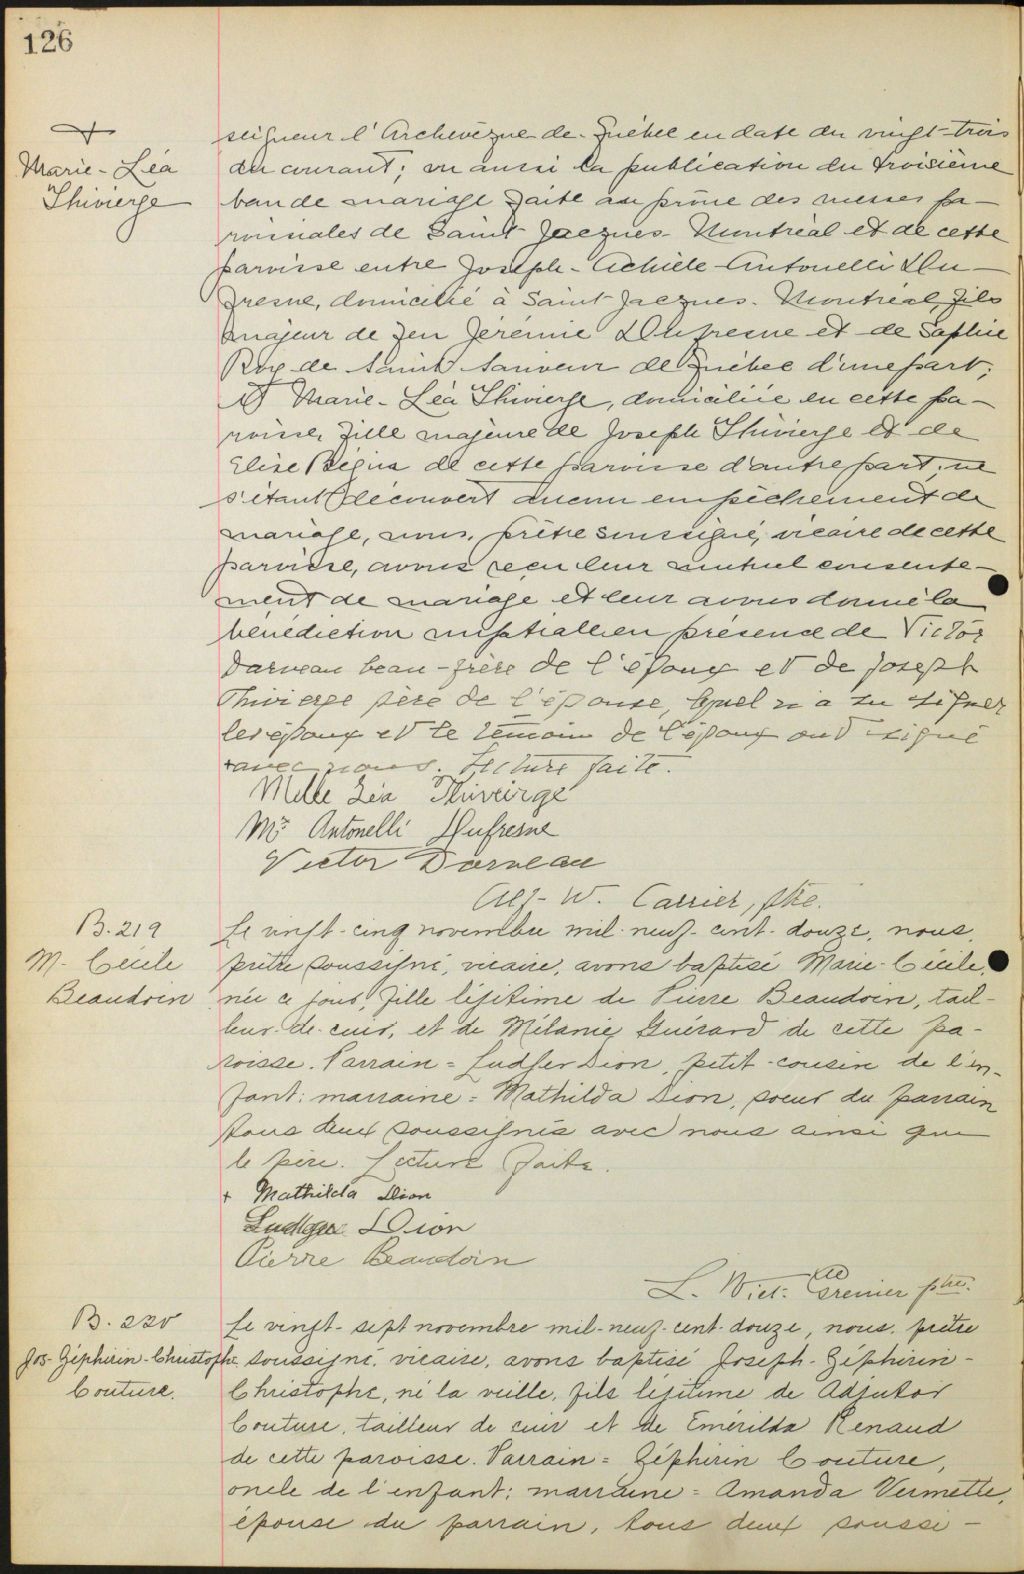 126
&
Marie-Léa
Thivierge
seigneur l'Archevêque de Québec en date du vingt-trois
du courant; vu aussi la publication du troisième
ban de mariage faite au prône des messes pa-
roissiales de Saint Jacques Montréal et de cette
paroisse entre Joseph-Achille-Antonelli Du-
fresne, domicilié à Saint Jacques Montréal, fils
majeur de feu Jérémie Dufresne et de Sophie
Roy de Saint Sauveur de Québec d'une part;
et Marie-Léa Thivierge, domiciliée en cette pa-
roisse, fille majeure de Joseph Thivierge et de
Elise Bégin de cette paroisse d'autre part; ne
s'étant découvert aucun empêchement de
mariage, nous, prêtre soussigné, vicaire de cette
paroisse, avons reçu leur mutuel consente-
ment de mariage et leur avons donné la
bénédiction nuptiale en présence de Victor
Darveau beau-frère de l'époux et de Joseph
Thivierge père de l'épouse, lequel n'a su signer
les époux et le témoin de l'époux ont signé
+ avec nous. Lecture faite.
Melle Léa Thiveirge
Mr Antonelli Dufresne
Victor Darveau
Alf-W. Carrier, ptre.
B. 219
M. Cécile
Beaudoin
Le vingt-cinq novembre mil-neuf-cent-douze, nous,
prêtre soussigné, vicaire, avons baptisé Marie-Cécile,
née ce jour, fille légitime de Pierre Beaudoin, tail-
leur-de-cuir, et de Mélanie Guérard de cette pa-
roisse. Parrain = Ludger Dion, petit-cousin de l'en-
fant; marraine = Mathilda Dion, soeur du parrain
tous deux soussignés avec nous ainsi que
le père. Lecture faite.
+ Mathilda Dion
Ludger Dion
Pierre Beaudoin
L. Vict. Grenier ptre.
B. 220
Jos-Zéphirin-Christophe
Couture.
Le vingt-sept novembre mil-neuf-cent-douze, nous, prêtre
soussigné, vicaire, avons baptisé Joseph-Zéphirin-
Christophe, né la veille, fils légitime de Adjutor
Couture, tailleur de cuir et de Emérilda Renaud
de cette paroisse. Parrain = Zéphirin Couture,
oncle de l'enfant; marraine = Amanda Vermette,
épouse du parrain, tous deux soussi-